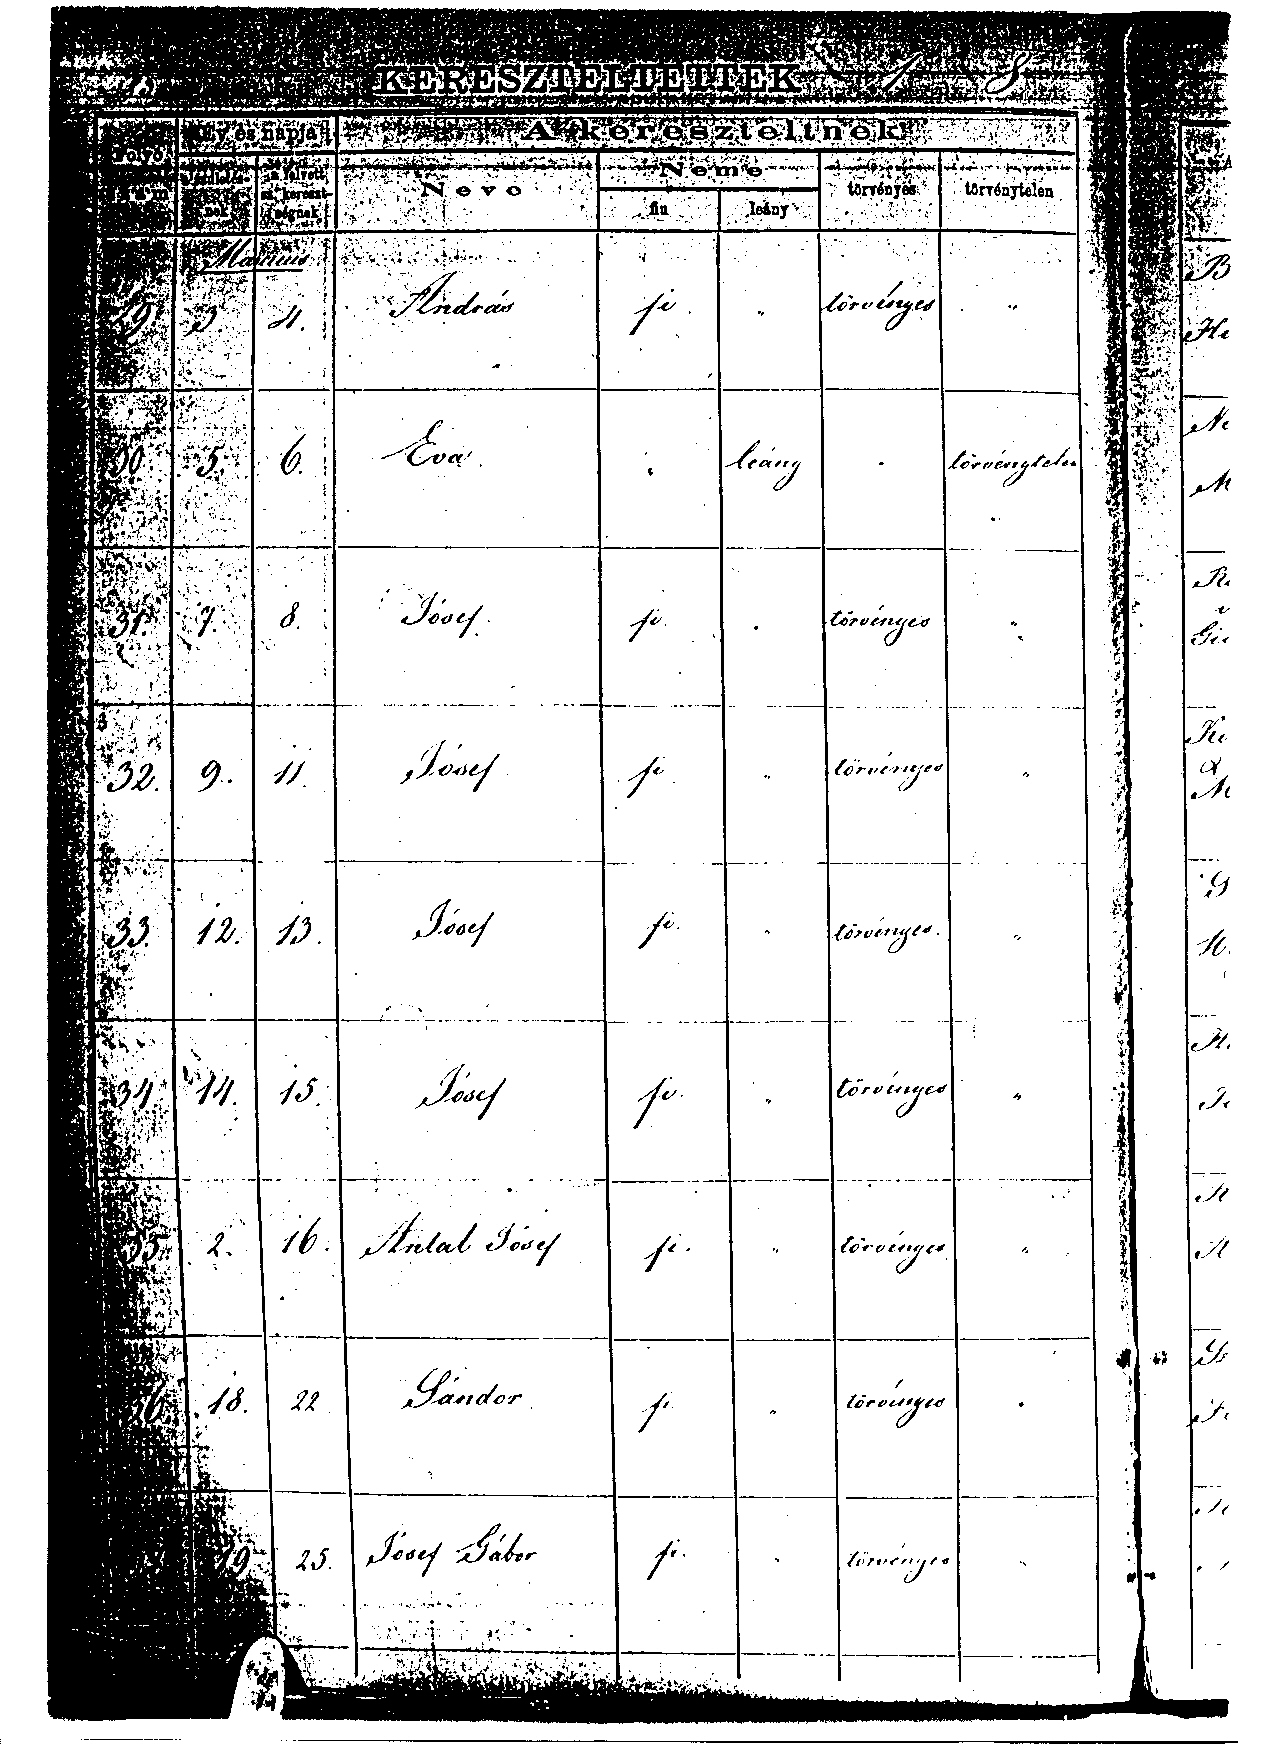 KERESZTELTETTEK 1 8
Folyó szám
Év és napja
A kereszteltnek
születés-nek
a felvett sz. kereszt-ségnek
Neve
Neme
törvényes
törvénytelen
fiu
leány
Martius
29 3 4. András fi " törvényes "
30 5. 6. Éva " leány " törvénytelen
31. 7. 8. Jósef fi " törvényes "
32. 9. 11. Jósef fi " törvényes "
33. 12. 13. Jósef fi. " törvényes. "
34 14. 15. Jósef fi. " törvényes "
35 2. 16. Antal Jósef fi. " törvényes "
36 18. 22 Sándor fi " törvényes "
19 25. Jósef Gábor fi. " törvényes "